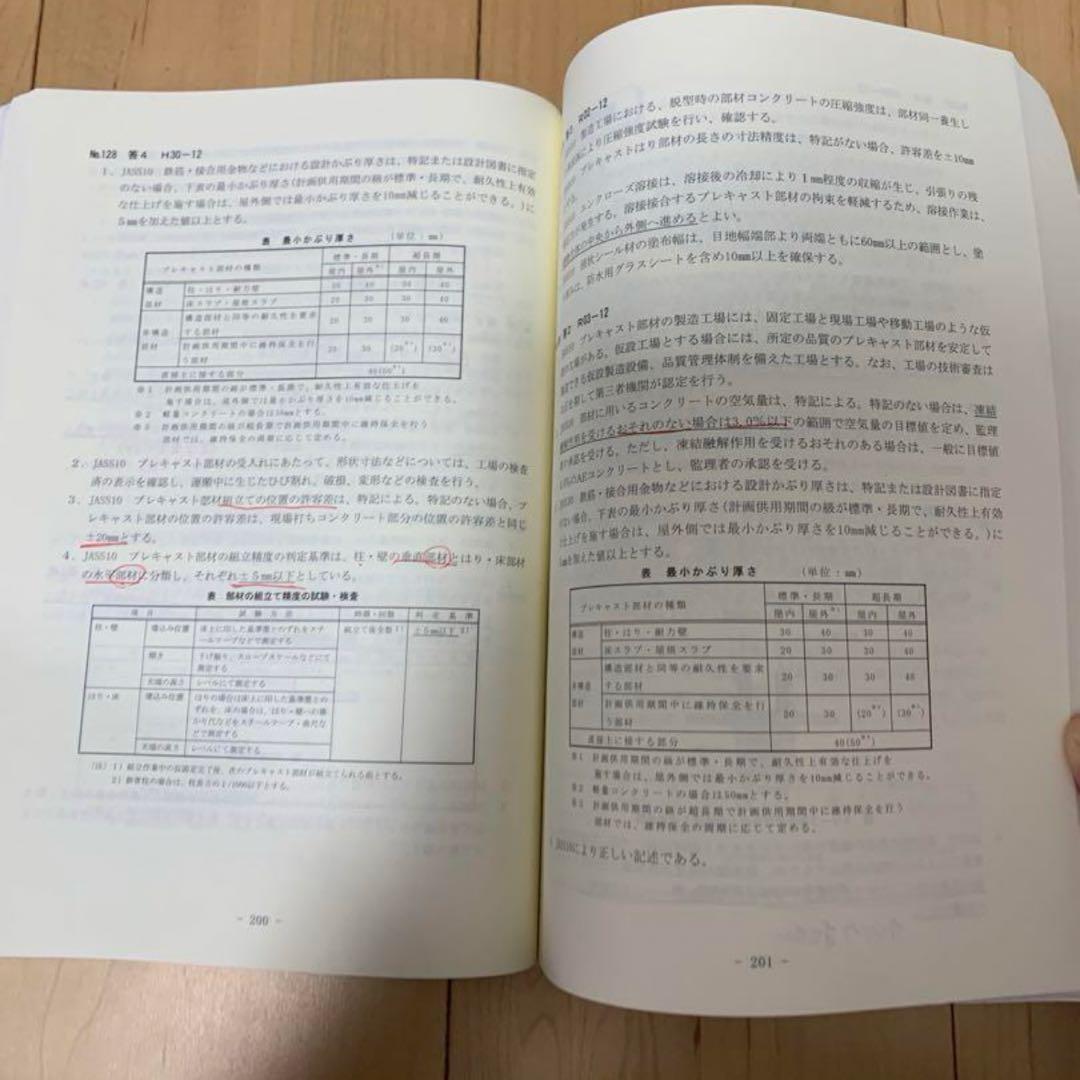 №128 答4 H30-12
1．JASS10 鉄筋・接合用金物などにおける設計かぶり厚さは、特記または設計図書に指定
のない場合、下表の最小かぶり厚さ(計画供用期間の級が標準・長期で、耐久性上有効
な仕上げを施す場合は、屋外側では最小かぶり厚さを10mm減じることができる。)に
5mmを加えた値以上とする。
表 最小かぶり厚さ (単位：mm)
プレキャスト部材の種類 標準・長期 超長期
屋内 屋外 屋内 屋外
構造 柱・はり・耐力壁 30 40 30 40
部材 床スラブ・屋根スラブ 20 30 30 40
非構造 構造部材と同等の耐久性を要求
する部材 20 30 30 40
部材 計画供用期間中に維持保全を行
う部材 20 30 (20) (30)
直接土に接する部分 40(50)
※1 計画供用期間の級が標準・長期で、耐久性上有効な仕上げを
施す場合は、屋外側では最小かぶり厚さを10mm減じることができる。
※2 軽量コンクリートの場合は50mmとする。
※3 計画供用期間の級が超長期で計画供用期間中に維持保全を行う
部材では、維持保全の周期に応じて定める。
2．JASS10 プレキャスト部材の受入れにあたって、形状寸法などについては、工場の検査
済の表示を確認し、運搬中に生じたひび割れ、破損、変形などの検査を行う。
3．JASS10 プレキャスト部材組立ての位置の許容差は、特記による。特記のない場合、プ
レキャスト部材の位置の許容差は、現場打ちコンクリート部分の位置の許容差と同じ
±20mmとする。
4．JASS10 プレキャスト部材の組立精度の判定基準は、柱・壁の垂直部材とはり・床部材
の水平部材に分類し、それぞれ±5mm以下としている。
表 部材の組立て精度の試験・検査
項目 試験方法 時期・回数 判定基準
柱・壁 据込み位置 床上に印した基準墨とのずれをスチ
ールテープなどで測定する 組立て後全数1) ±5mm以下2)
傾き 下げ振り、スロープスケールなどにて
測定する
天端の高さ レベルにて測定する
はり・床 据込み位置 はりの場合は床上に印した基準墨との
ずれを、床の場合は、はり・壁への掛
かり代などをスチールテープ・曲尺な
どで測定する
天端の高さ レベルにて測定する
(注) 1) 組立作業中の仮固定完了後、次のプレキャスト部材が組立てられる前とする。
- 200 -
R02-12
製造工場における、脱型時の部材コンクリートの圧縮強度は、部材同一養生し
により圧縮強度試験を行い、確認する。
プレキャストはり部材の長さの寸法精度は、特記がない場合、許容差を±10mm
エンクローズ溶接は、溶接後の冷却により1mm程度の収縮が生じ、引張りの残
が発生する。溶接接合するプレキャスト部材の拘束を軽減するため、溶接作業は、
の中央から外側へ進めるとよい。
シール材の塗布幅は、目地幅端部より両端ともに60mm以上の範囲とし、塗
は、防水用グラスシートを含め10mm以上を確保する。
答2 R03-12
プレキャスト部材の製造工場には、固定工場と現場工場や移動工場のような仮
工場がある。仮設工場とする場合には、所定の品質のプレキャスト部材を安定して
できる仮設製造設備、品質管理体制を備えた工場とする。なお、工場の技術審査は
して第三者機関が認定を行う。
部材に用いるコンクリートの空気量は、特記による。特記のない場合は、凍結
作用を受けるおそれのない場合は3.0%以下の範囲で空気量の目標値を定め、監理
承認を受ける。ただし、凍結融解作用を受けるおそれのある場合は、一般に目標値
AEコンクリートとし、監理者の承認を受ける。
鉄筋・接合用金物などにおける設計かぶり厚さは、特記または設計図書に指定
ない場合、下表の最小かぶり厚さ(計画供用期間の級が標準・長期で、耐久性上有効
仕上げを施す場合は、屋外側では最小かぶり厚さを10mm減じることができる。)に
を加えた値以上とする。
表 最小かぶり厚さ (単位：mm)
プレキャスト部材の種類 標準・長期 超長期
屋内 屋外 屋内 屋外
構造 柱・はり・耐力壁 30 40 30 40
部材 床スラブ・屋根スラブ 20 30 30 40
非構造 構造部材と同等の耐久性を要求
する部材 20 30 30 40
部材 計画供用期間中に維持保全を行
う部材 20 30 (20) (30)
直接土に接する部分 40(50)
※1 計画供用期間の級が標準・長期で、耐久性上有効な仕上げを
施す場合は、屋外側では最小かぶり厚さを10mm減じることができる。
※2 軽量コンクリートの場合は50mmとする。
※3 計画供用期間の級が超長期で計画供用期間中に維持保全を行う
部材では、維持保全の周期に応じて定める。
JASS10により正しい記述である。
- 201 -